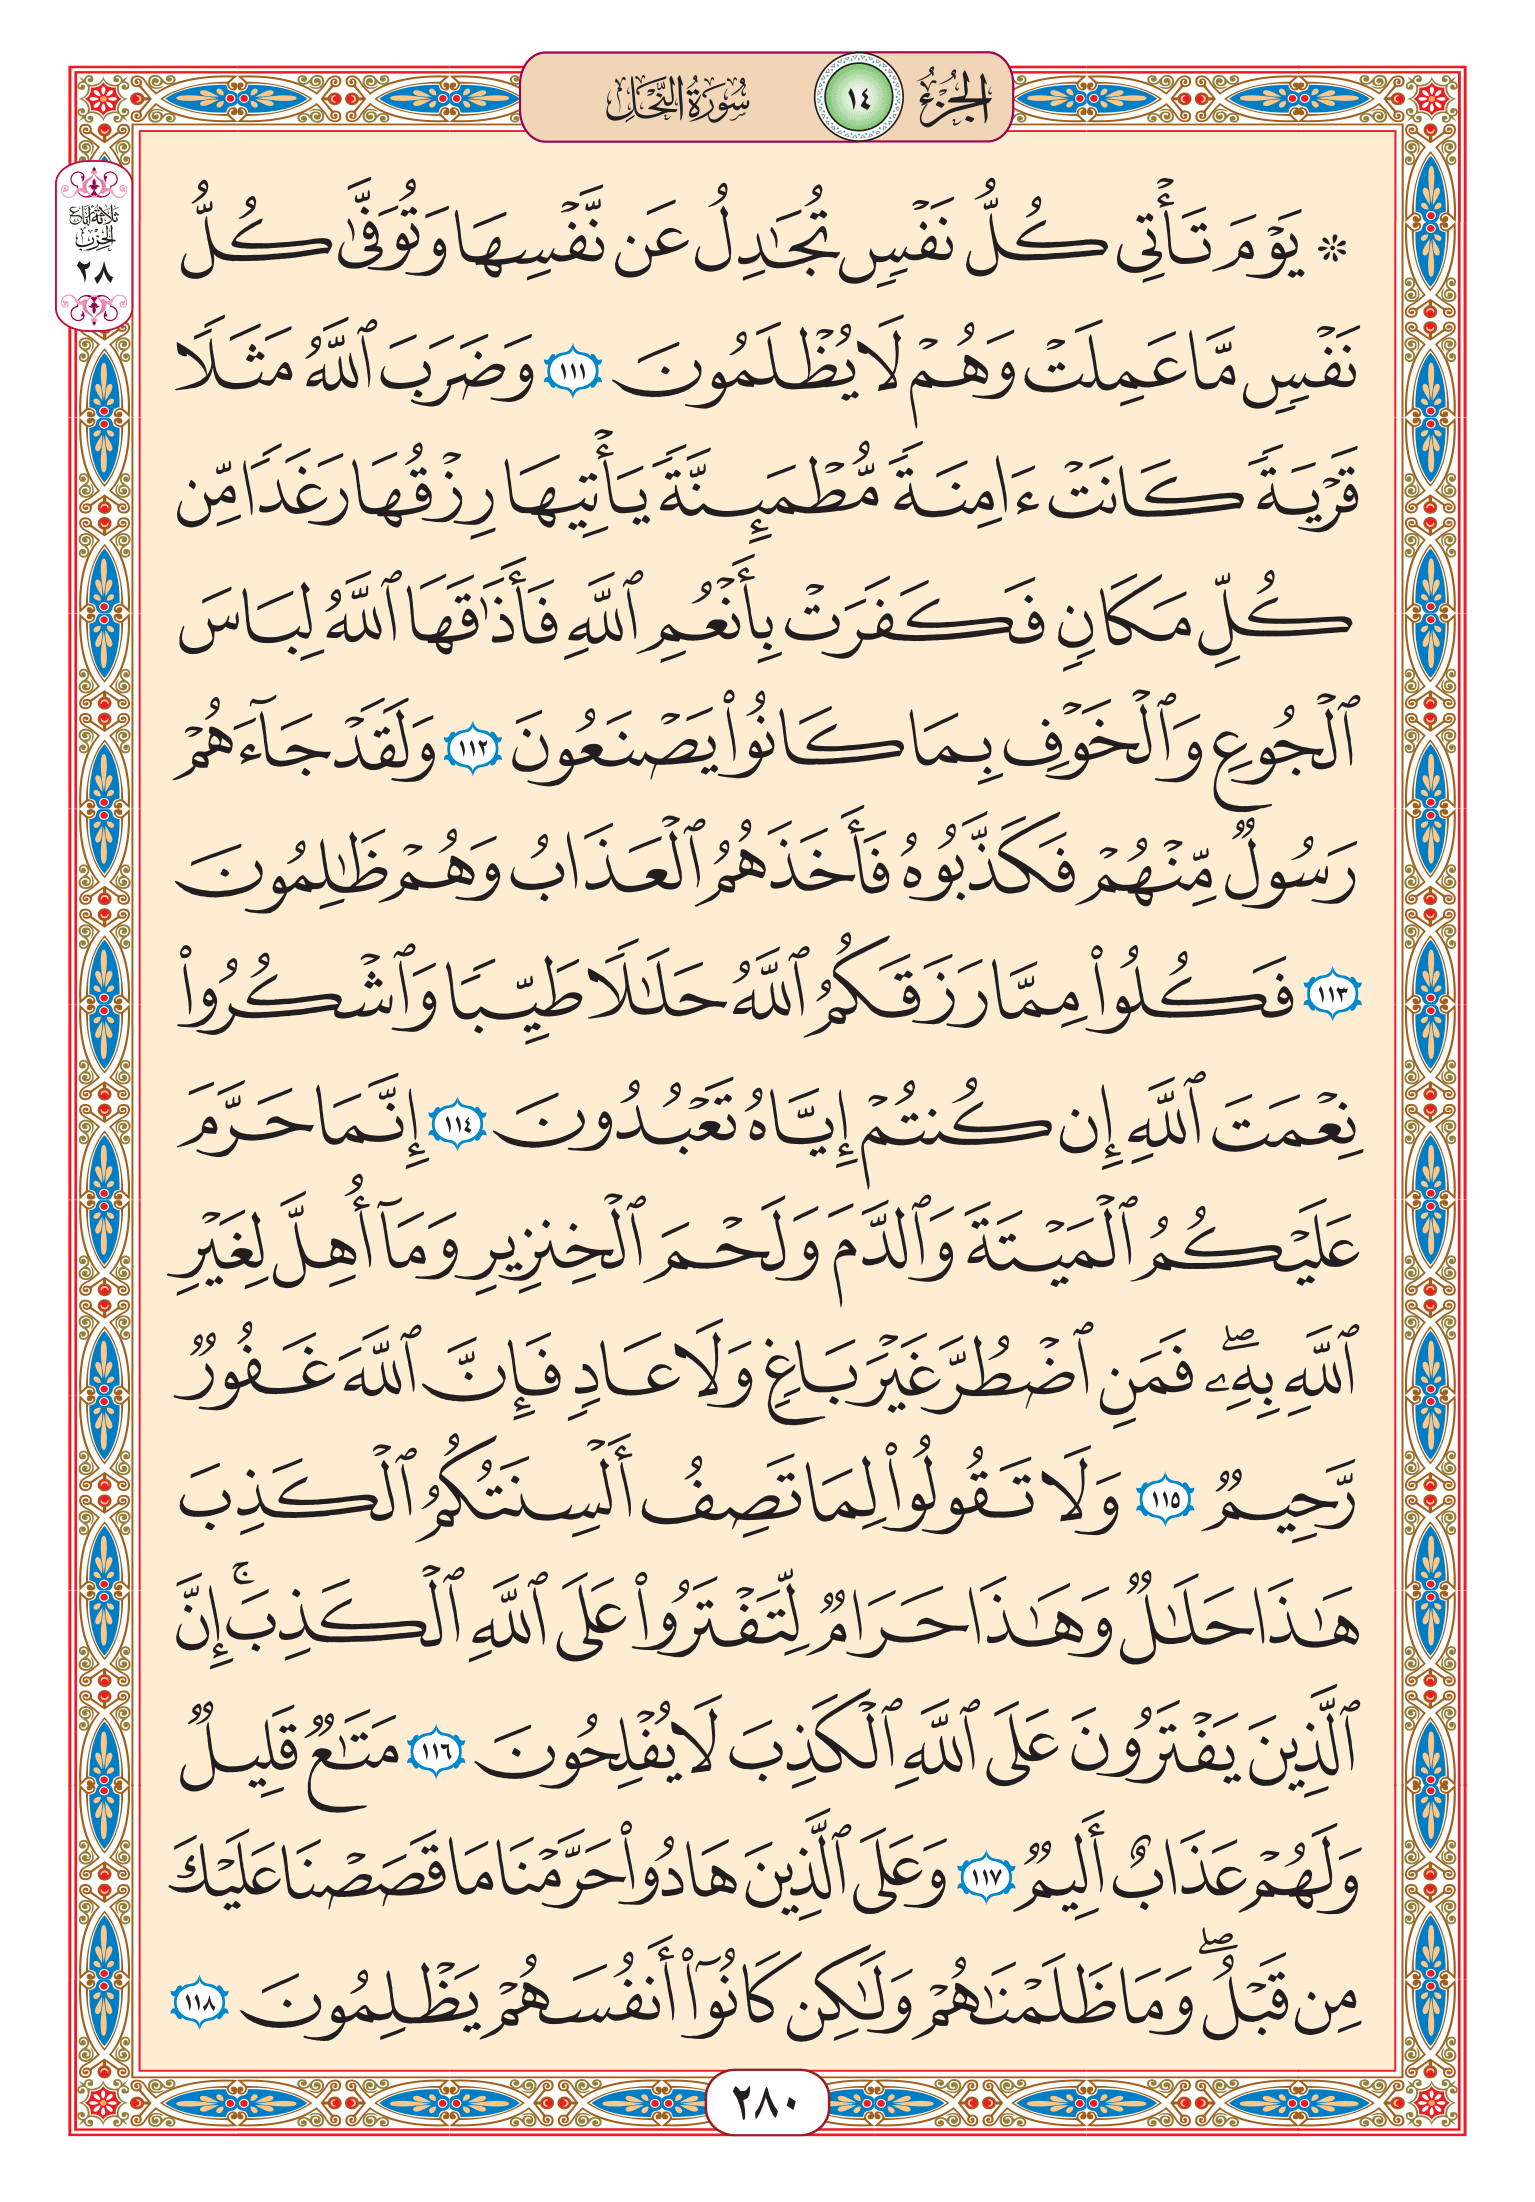 الجزء ١٤ سورة النحل
ثلاثة أرباع
الحزب
٢٨
۞ يَوْمَ تَأْتِي كُلُّ نَفْسٍ تُجَٰدِلُ عَن نَّفْسِهَا وَتُوَفَّىٰ كُلُّ
نَفْسٍ مَّا عَمِلَتْ وَهُمْ لَا يُظْلَمُونَ ١١١ وَضَرَبَ ٱللَّهُ مَثَلًا
قَرْيَةً كَانَتْ ءَامِنَةً مُّطْمَئِنَّةً يَأْتِيهَا رِزْقُهَا رَغَدًا مِّن
كُلِّ مَكَانٍ فَكَفَرَتْ بِأَنْعُمِ ٱللَّهِ فَأَذَٰقَهَا ٱللَّهُ لِبَاسَ
ٱلْجُوعِ وَٱلْخَوْفِ بِمَا كَانُوا۟ يَصْنَعُونَ ١١٢ وَلَقَدْ جَآءَهُمْ
رَسُولٌ مِّنْهُمْ فَكَذَّبُوهُ فَأَخَذَهُمُ ٱلْعَذَابُ وَهُمْ ظَٰلِمُونَ
١١٣ فَكُلُوا۟ مِمَّا رَزَقَكُمُ ٱللَّهُ حَلَٰلًا طَيِّبًا وَٱشْكُرُوا۟
نِعْمَتَ ٱللَّهِ إِن كُنتُمْ إِيَّاهُ تَعْبُدُونَ ١١٤ إِنَّمَا حَرَّمَ
عَلَيْكُمُ ٱلْمَيْتَةَ وَٱلدَّمَ وَلَحْمَ ٱلْخِنزِيرِ وَمَآ أُهِلَّ لِغَيْرِ
ٱللَّهِ بِهِۦۖ فَمَنِ ٱضْطُرَّ غَيْرَ بَاغٍ وَلَا عَادٍ فَإِنَّ ٱللَّهَ غَفُورٌ
رَّحِيمٌ ١١٥ وَلَا تَقُولُوا۟ لِمَا تَصِفُ أَلْسِنَتُكُمُ ٱلْكَذِبَ
هَٰذَا حَلَٰلٌ وَهَٰذَا حَرَامٌ لِّتَفْتَرُوا۟ عَلَى ٱللَّهِ ٱلْكَذِبَۚ إِنَّ
ٱلَّذِينَ يَفْتَرُونَ عَلَى ٱللَّهِ ٱلْكَذِبَ لَا يُفْلِحُونَ ١١٦ مَتَٰعٌ قَلِيلٌ
وَلَهُمْ عَذَابٌ أَلِيمٌ ١١٧ وَعَلَى ٱلَّذِينَ هَادُوا۟ حَرَّمْنَا مَا قَصَصْنَا عَلَيْكَ
مِن قَبْلُۖ وَمَا ظَلَمْنَٰهُمْ وَلَٰكِن كَانُوٓا۟ أَنفُسَهُمْ يَظْلِمُونَ ١١٨
٢٨٠